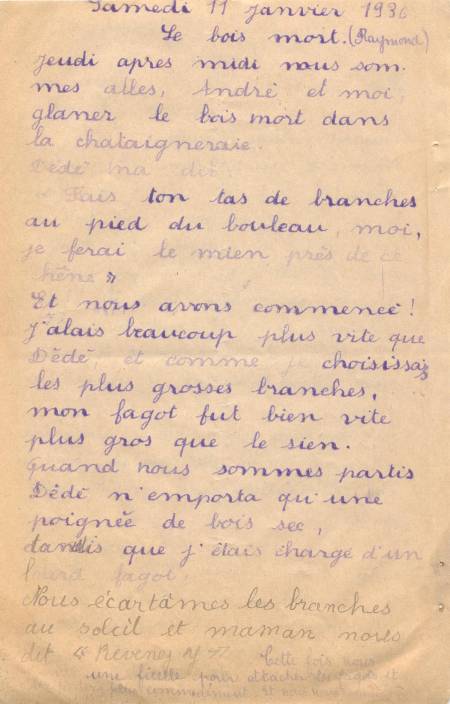 Samedi 11 janvier 1936
Le bois mort. (Raymond)
Jeudi après midi nous som-
mes allés, André et moi,
glaner le bois mort dans
la chataigneraie.
Dédé m'a dit :
« Fais ton tas de branches
au pied du bouleau, moi,
je ferai le mien près de ce
hêne »
Et nous avons commencé !
J'alais beaucoup plus vite que
Dédé, et comme je choisissais
les plus grosses branches,
mon fagot fut bien vite
plus gros que le sien.
Quand nous sommes partis
Dédé n'emporta qu'une
poignée de bois sec,
tandis que j'étais chargé d'un
lourd fagot.
Nous écartâmes les branches
au soleil et maman nous
dit « Revenez y »
Cette fois nous
une ficelle pour attacher les fagots et
plus commodément. Et nous